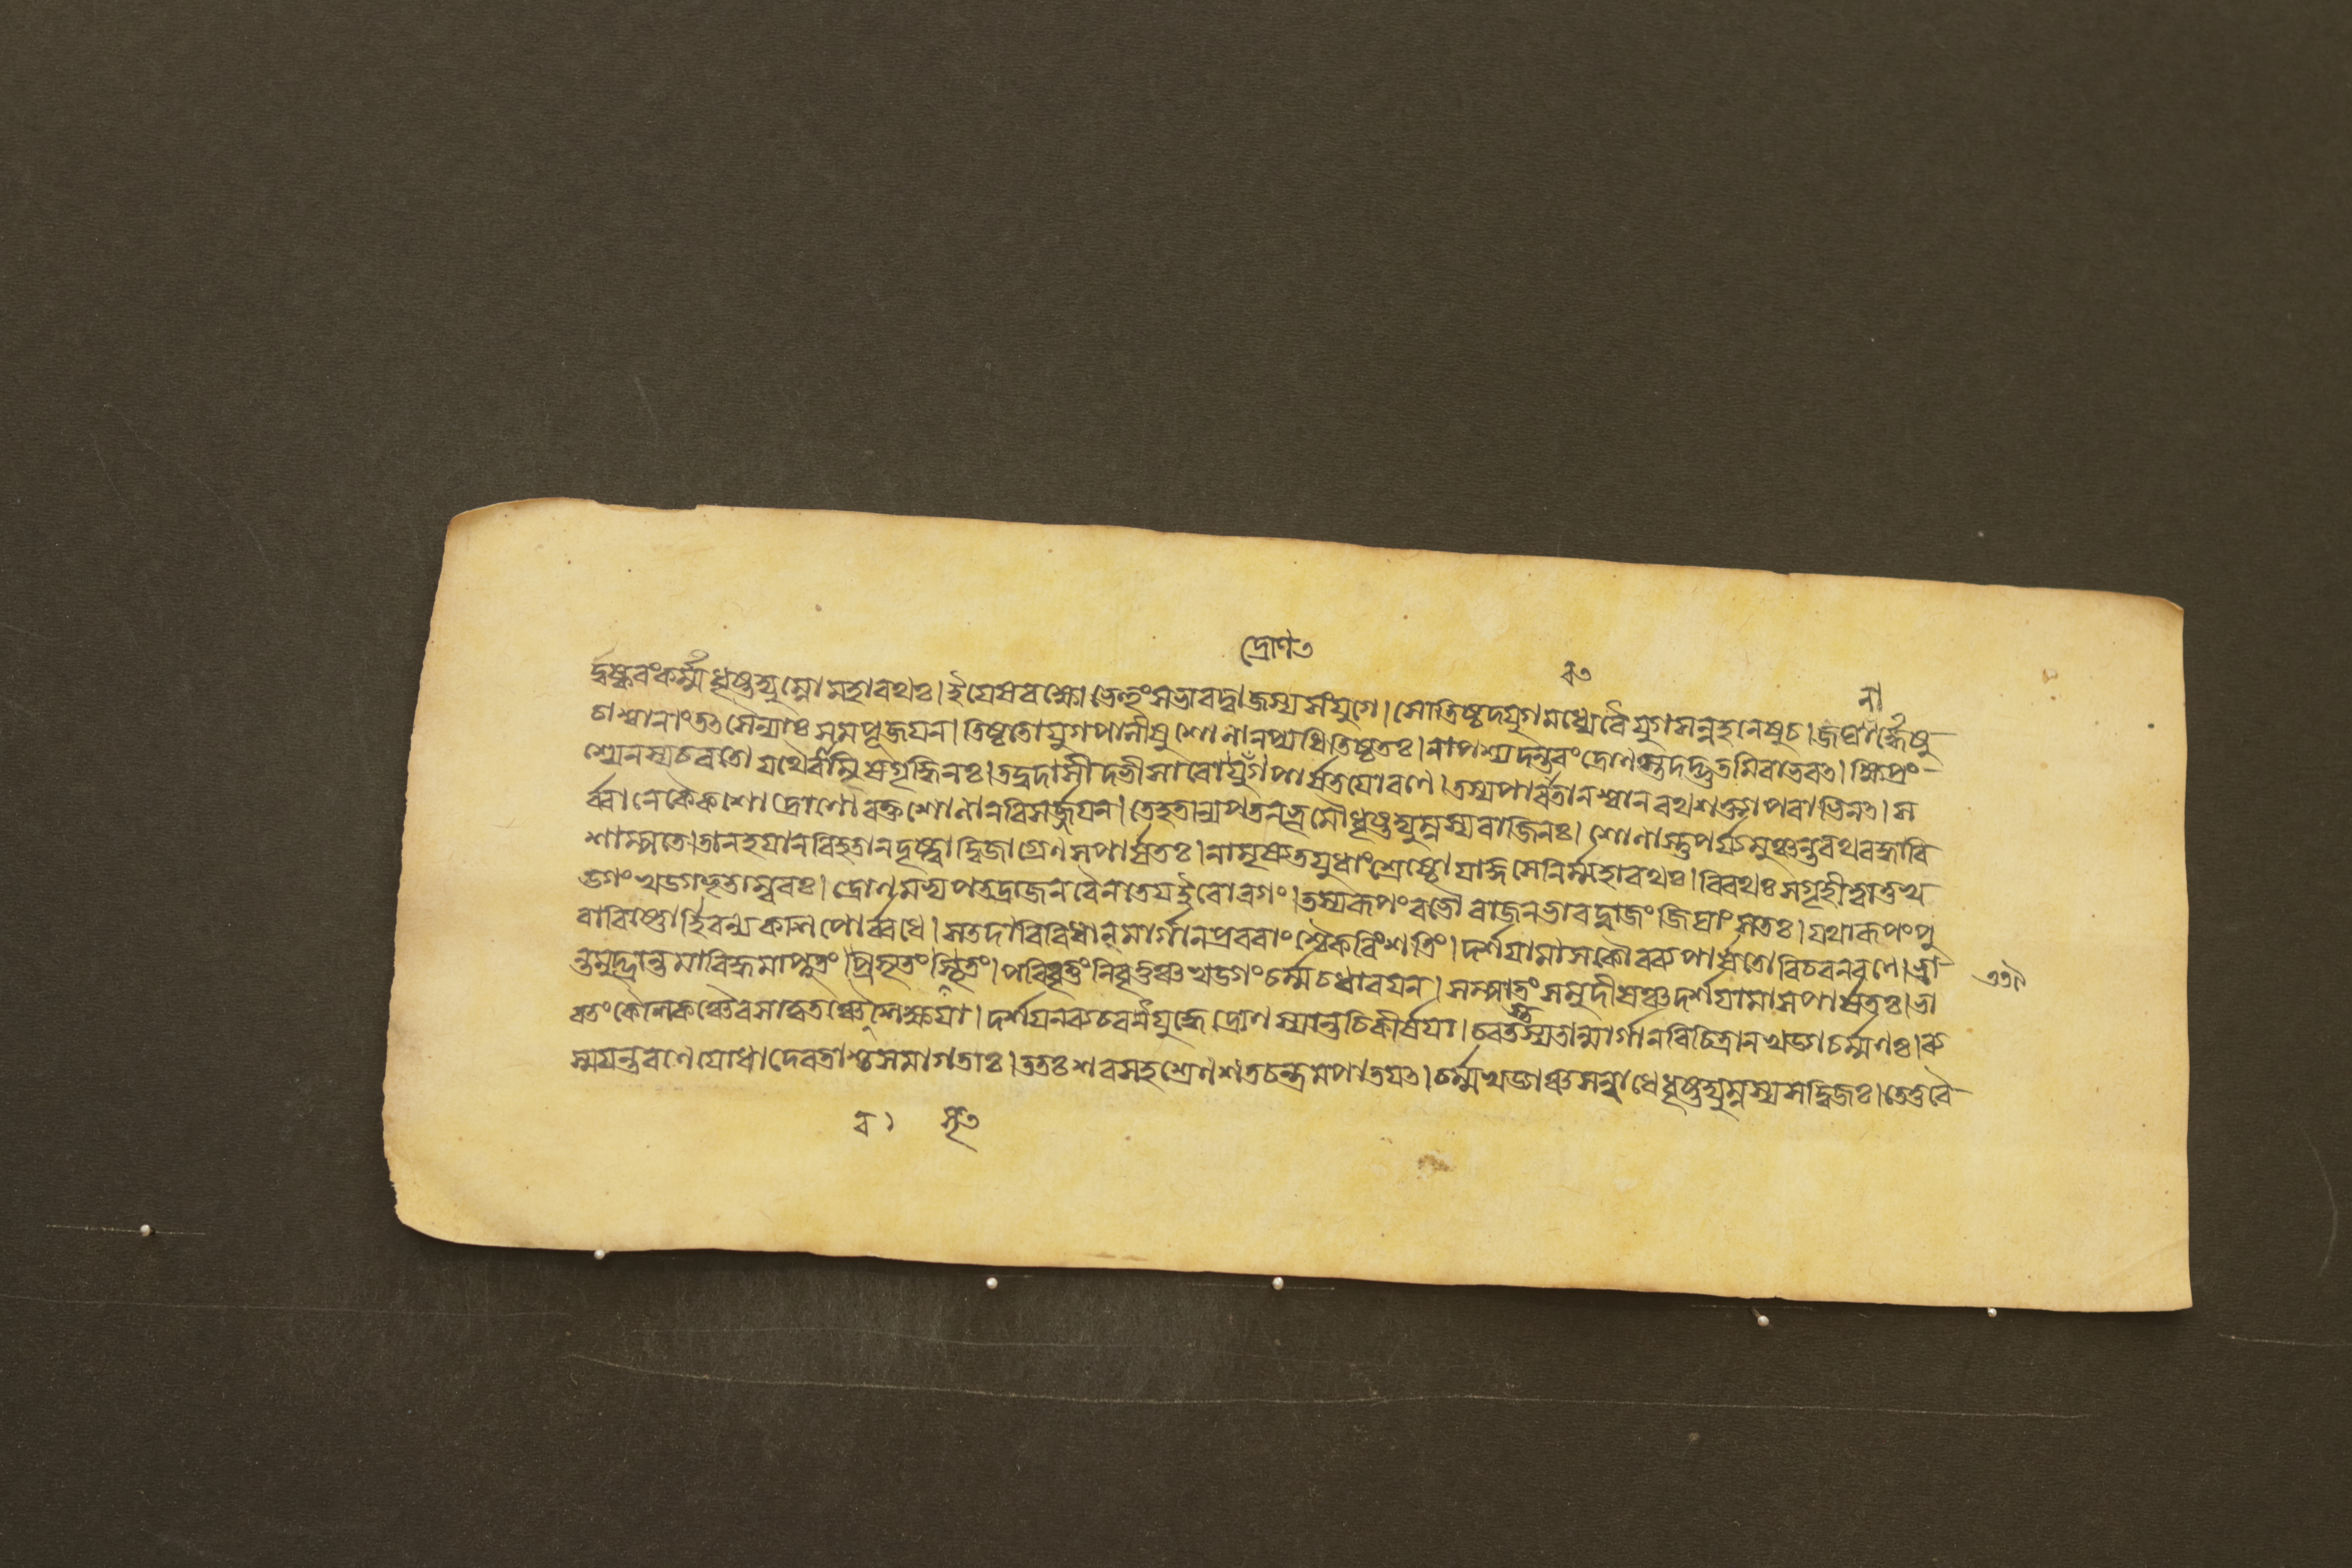 দ্রোণ৩
র্দুষ্করংকর্ম্মধৃষ্টদ্যুম্নোমহারথঃ।ইয়েষবক্ষোভেত্তুংসভারদ্বাজস্যসংযুগে।সোতিষ্টদযুগমধ্যেবৈযুগসন্নহনেষুচ।জঘনার্দ্ধেষু
চাশ্বানাংতত্সৈন্যাঃসমপূজয়ন।তিষ্টতোযুগপালীষুশোনানপ্যধিতিষ্টতঃ।নাপশ্যদন্তরংদ্রোণস্তদদ্ভুতমিবাভবত।ক্ষিপ্রং
শ্যেনস্যচরতোযথৈবামিষগৃদ্ধিনঃ।তদ্বদাসীদভীসারোদ্রোণপার্ষতয়োরণে।তস্যপারাবতানশ্বানরথশক্ত্যাপরাভিনত।স
র্ব্বানেকৈকশোদ্রোণোরক্তশোণানবিসর্জ্জয়ন।তেহতান্যপতনভূমৌধৃষ্টদ্যুম্নস্যবাজিনঃ।শোণাস্তুপর্য্যমুঞ্চন্তরথবন্ধাবি
শাম্পতে।তানহয়ানবিহতানদৃষ্ট্বাদ্বিজাগ্রেণসপার্ষতঃ।নামৃষ্যতযুধাংশ্রেষ্টোযাজ্ঞসেনির্ম্মহারথঃ।বিরথঃসগৃহীত্বাতুখ
ড্গংখড্গভৃতাম্বরঃ।দ্রোণমভ্যপতদ্রাজনবৈনতেয়ইবোরগং।তস্যরূপংবভৌরাজনভারদ্বাজংজিঘাংসতঃ।যথারূপংপু
রাবিষ্ণোর্হিরণ্যকশিপোর্ব্বধে।সতদাবিবিধানমার্গানপ্রবরাংশ্চৈকবিংশতিং।দর্শয়ামাসকৌরব্যপার্ষতোবিচরনরণে।ভ্রা
ন্তমুদ্ভ্রান্তমাবিদ্ধমাপ্লুতংপ্রসৃতংসৃতং।পরিবৃত্তংনিবৃত্তঞ্চখড্গংচর্ম্মচধারয়ন।সম্পাতংসমুদীর্ষঞ্চদর্শয়ামাসপার্ষতঃ।ভা
রতংকৌশিকঞ্চৈবসাত্বতঞ্চৈবশিক্ষয়া।দর্শয়নব্যচরদ্যুদ্ধেদ্রোণস্যান্তচিকীর্ষয়া।চরতস্তস্যতান্মার্গানবিচিত্রানখড্গচর্ম্মণঃ।ব্য
স্ময়ন্তরণেযোধাদেবতাশ্চসমাগতাঃ।ততঃশরসহশ্রেণশতচন্দ্রমপাতয়ত।চর্ম্মখড্গঞ্চসম্বাধেধৃষ্টদ্যুম্নস্যসদ্বিজঃ।তেতুবৈ